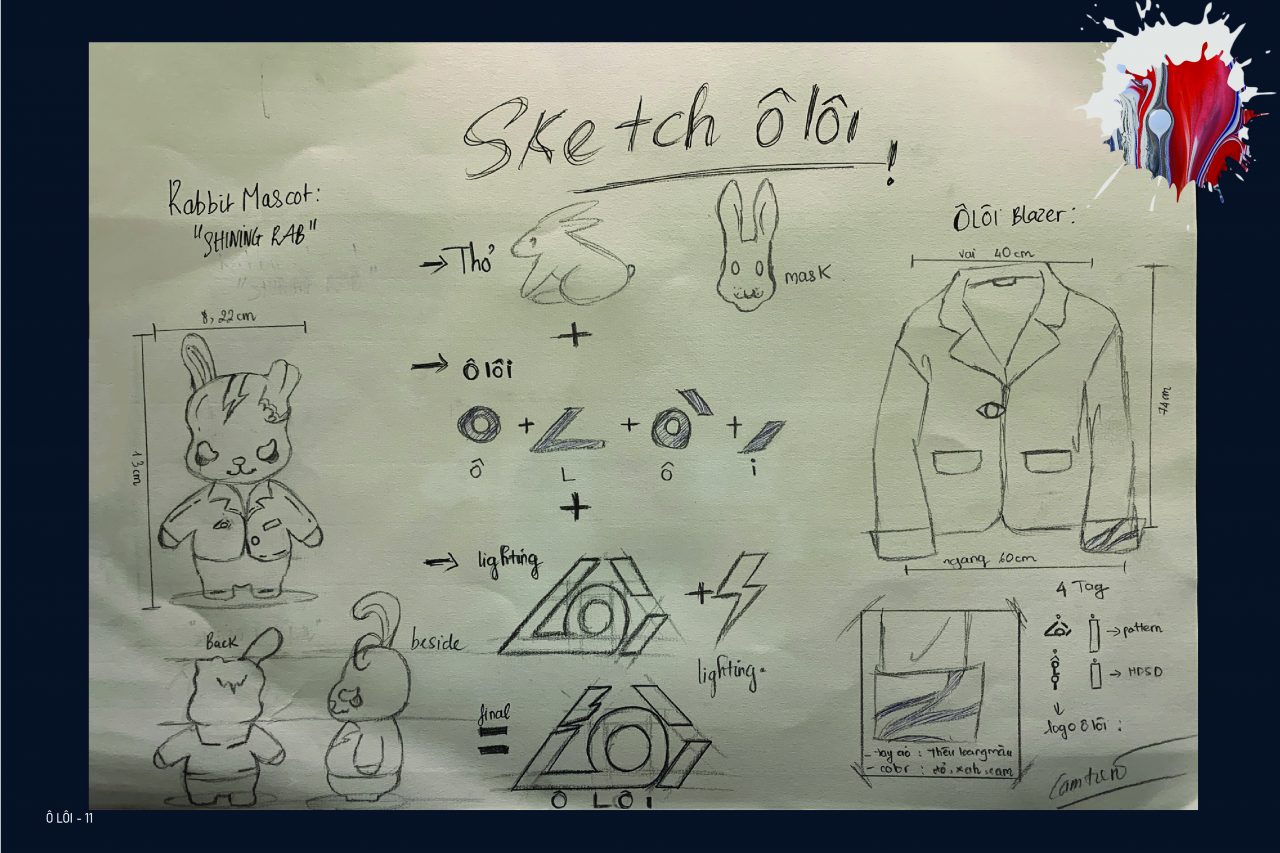 Sketch ô lôi !
Rabbit Mascot:
"SHINING RAB"
8,22cm
13cm
Back
beside
→ Thỏ
mask
+
→ ô lôi
+ + +
Ô L Ô i
+
→ lighting
+
lighting.
final
=
Ô L Ô i
ÔLÔi Blazer:
vai 40cm
74cm
ngang 60cm
4 Tag
→ pattern
→ HDSD
logo ô lôi :
- tay áo : Thêu loang màu
- color : đỏ, xanh, cam
Ô LÔI - 11